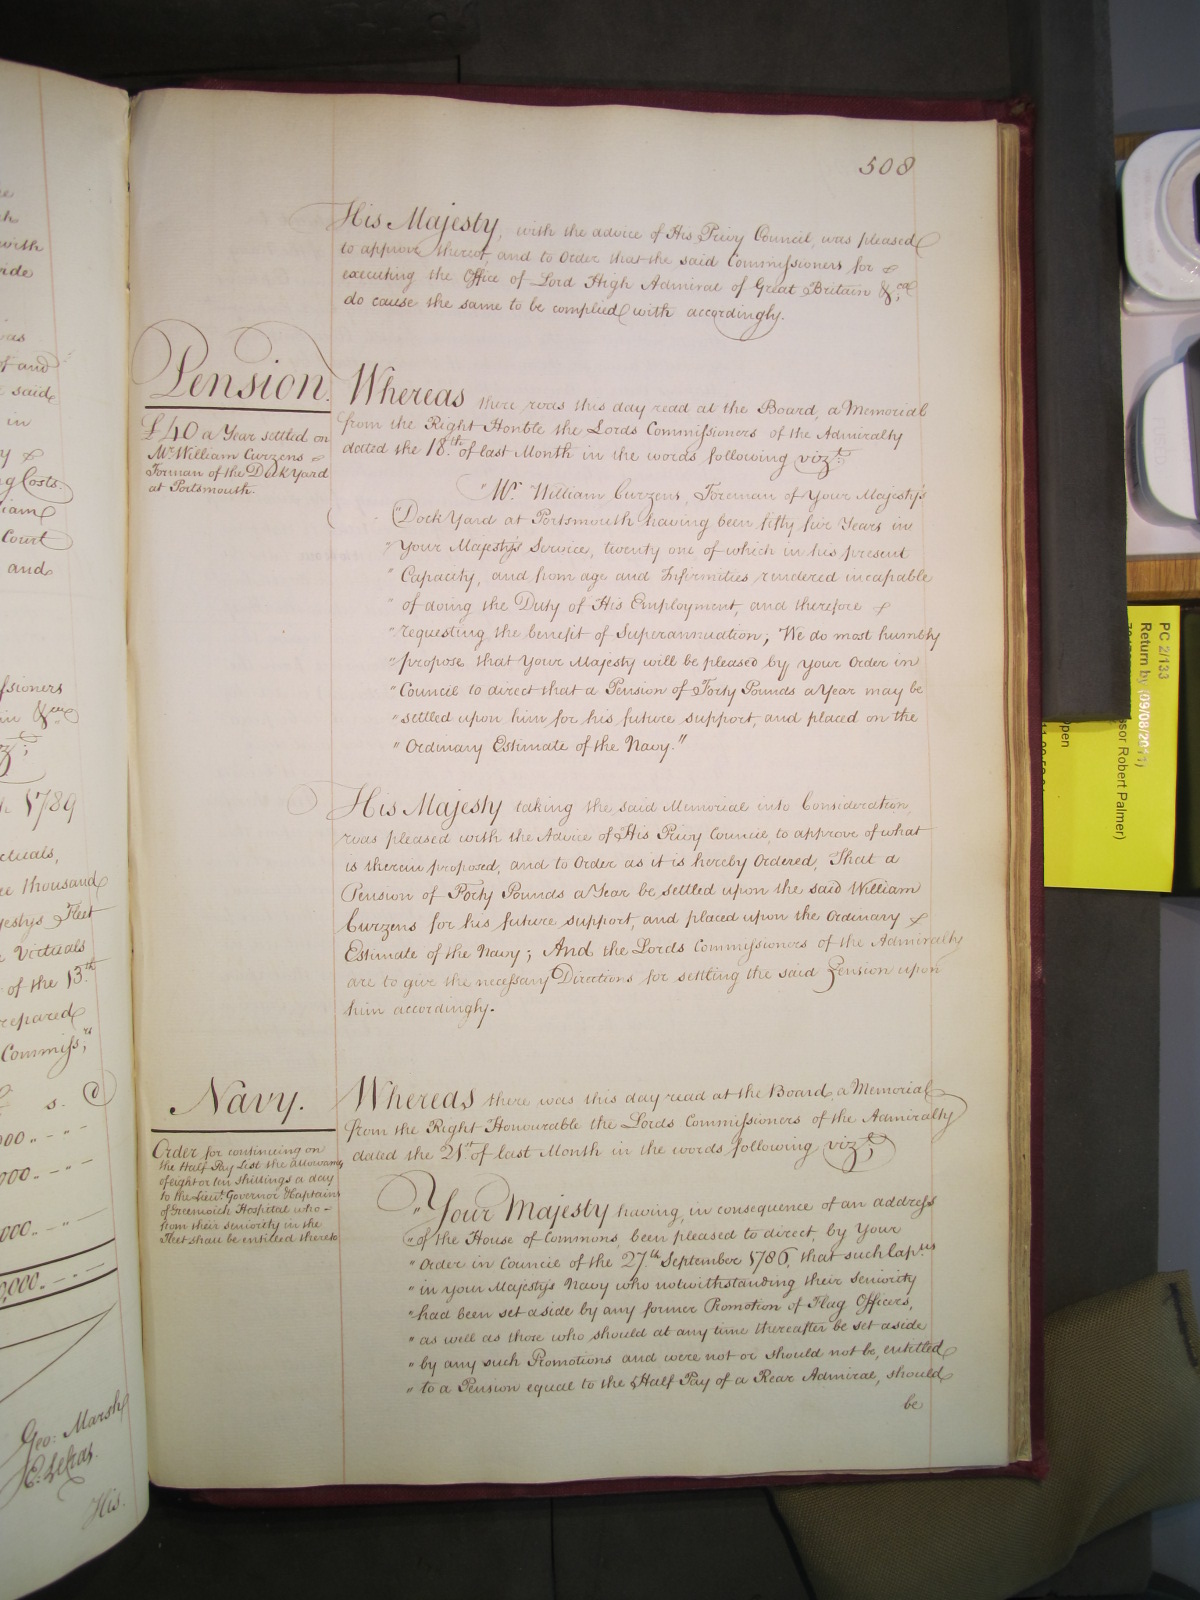 508
His Majesty, with the advice of His Privy Council, was pleased
to approve thereof, and to Order that the said Commissioners for
executing the Office of Lord High Admiral of Great Britain &ca
do cause the same to be complied with accordingly.
Pension.
£40 a Year settled on
Mr. William Curzens
Forman of the Dock Yard
at Portsmouth.
Whereas there was this day read at the Board, a Memorial
from the Right Honble the Lords Commissioners of the Admiralty
dated the 18th of last Month in the words following vizt.
"Mr. William Curzens, Foreman of Your Majesty's
"Dock Yard at Portsmouth having been fifty five Years in
"Your Majestys Service, twenty one of which in his present
"Capacity, and from age and Infirmities rendered incapable
"of doing the Duty of His Employment, and therefore
"requesting the benefit of Superannuation; We do most humbly
"propose that Your Majesty will be pleased by Your Order in
"Council to direct that a Pension of Forty Pounds a Year may be
"settled upon him for his future support, and placed on the
"Ordinary Estimate of the Navy."
His Majesty taking the said Memorial into Consideration,
was pleased with the Advice of His Privy Council, to approve of what
is therein proposed, and to Order as it is hereby Ordered, That a
Pension of Forty Pounds a Year be settled upon the said William
Curzens for his future support, and placed upon the Ordinary
Estimate of the Navy; And the Lords Commissioners of the Admiralty
are to give the necessary Directions for settling the said Pension upon
him accordingly.
Navy.
Order for continuing on
the Half Pay List the allowance
of eight or ten Shillings a day
to the Lieut. Governor & Captains
of Greenwich Hospital who
from their seniority in the
Fleet shall be entitled thereto
Whereas there was this day read at the Board, a Memorial
from the Right Honourable the Lords Commissioners of the Admiralty
dated the 21st of last Month in the words following vizt.
"Your Majesty having, in consequence of an address
"of the House of Commons, been pleased to direct, by Your
"Order in Council of the 27th September 1786, that such Capns
"in your Majestys Navy who notwithstanding their seniority
"had been set aside by any former Promotion of Flag Officers,
"as well as those who should at any time thereafter be set aside
"by any such Promotions and were not or should not be, entitled
"to a Pension equal to the Half Pay of a Rear Admiral, should
be
with
said
in
Costs.
Court
and
1789
thousand
Fleet
Victuals
of the 13th
Commissrs
s. d
Geo: Marsh
His
PC 2/133
Return by (09/08/2011)
Robert Palmer)